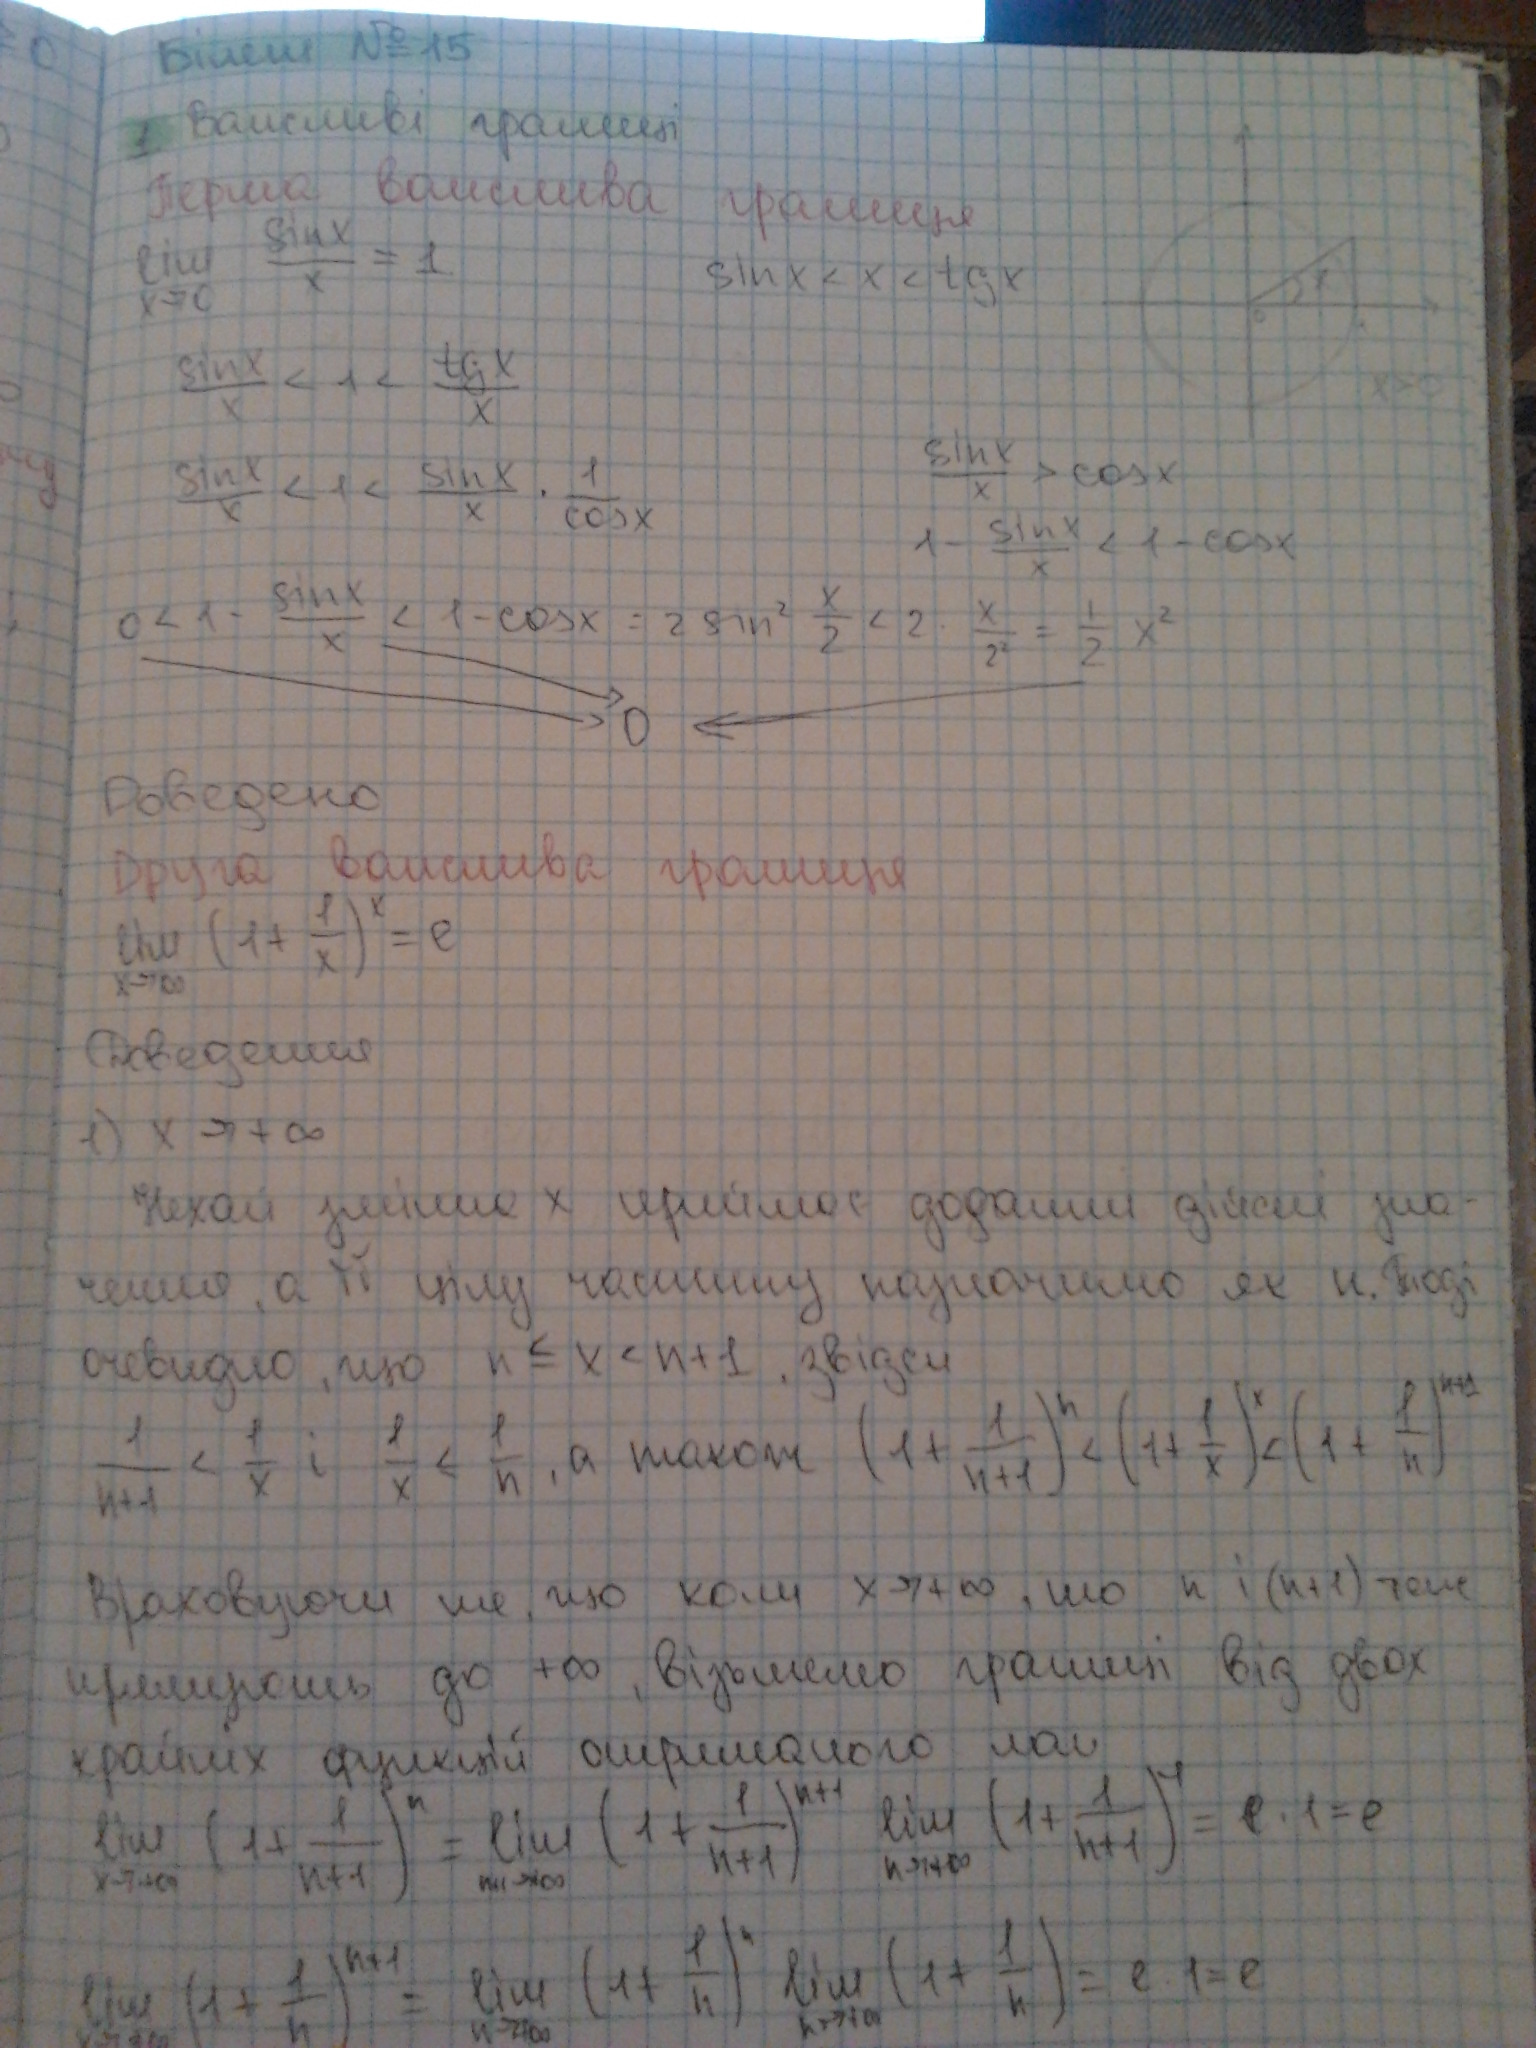 Білет №15
1 Важливі границі
Перша важлива границя
lim x→0 sinx/x = 1 sinx < x < tgx
x
0
x>0
sinx/x < 1 < tgx/x
sinx/x < 1 < sinx/x · 1/cosx sinx/x > cosx
1 - sinx/x < 1 - cosx
0 < 1 - sinx/x < 1 - cosx = 2 sin² x/2 < 2 · x/2² = 1/2 x²
0
Доведено
Друга важлива границя
lim x→∞ (1 + 1/x)^x = e
Доведення
1) x → +∞
Нехай змінна x приймає додатні дійсні зна-
чення, а її цілу частину позначимо як n. Тоді
очевидно, що n ≤ x < n+1, звідси
1/(n+1) < 1/x і 1/x < 1/n, а також (1 + 1/(n+1))^n < (1 + 1/x)^x < (1 + 1/n)^(n+1)
Враховуючи те, що коли x → +∞, то n і (n+1) теж
прямують до +∞, візьмемо границі від двох
крайніх функцій отриманого
lim x→+∞ (1 + 1/(n+1))^n = lim n+1→+∞ (1 + 1/(n+1))^(n+1) lim n→+∞ (1 + 1/(n+1))^-1 = e · 1 = e
lim x→+∞ (1 + 1/n)^(n+1) = lim n→+∞ (1 + 1/n)^n lim n→+∞ (1 + 1/n) = e · 1 = e